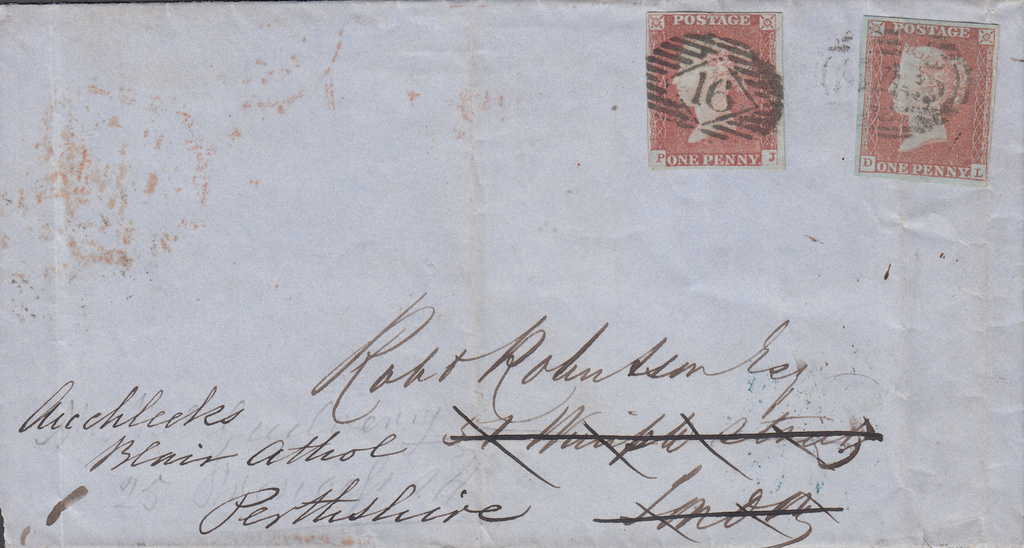 POSTAGE
16
P ONE PENNY J
POSTAGE
D ONE PENNY L
Robt Robertson Esq
Auchleeks
Blair Athol
Perthshire
Street
London